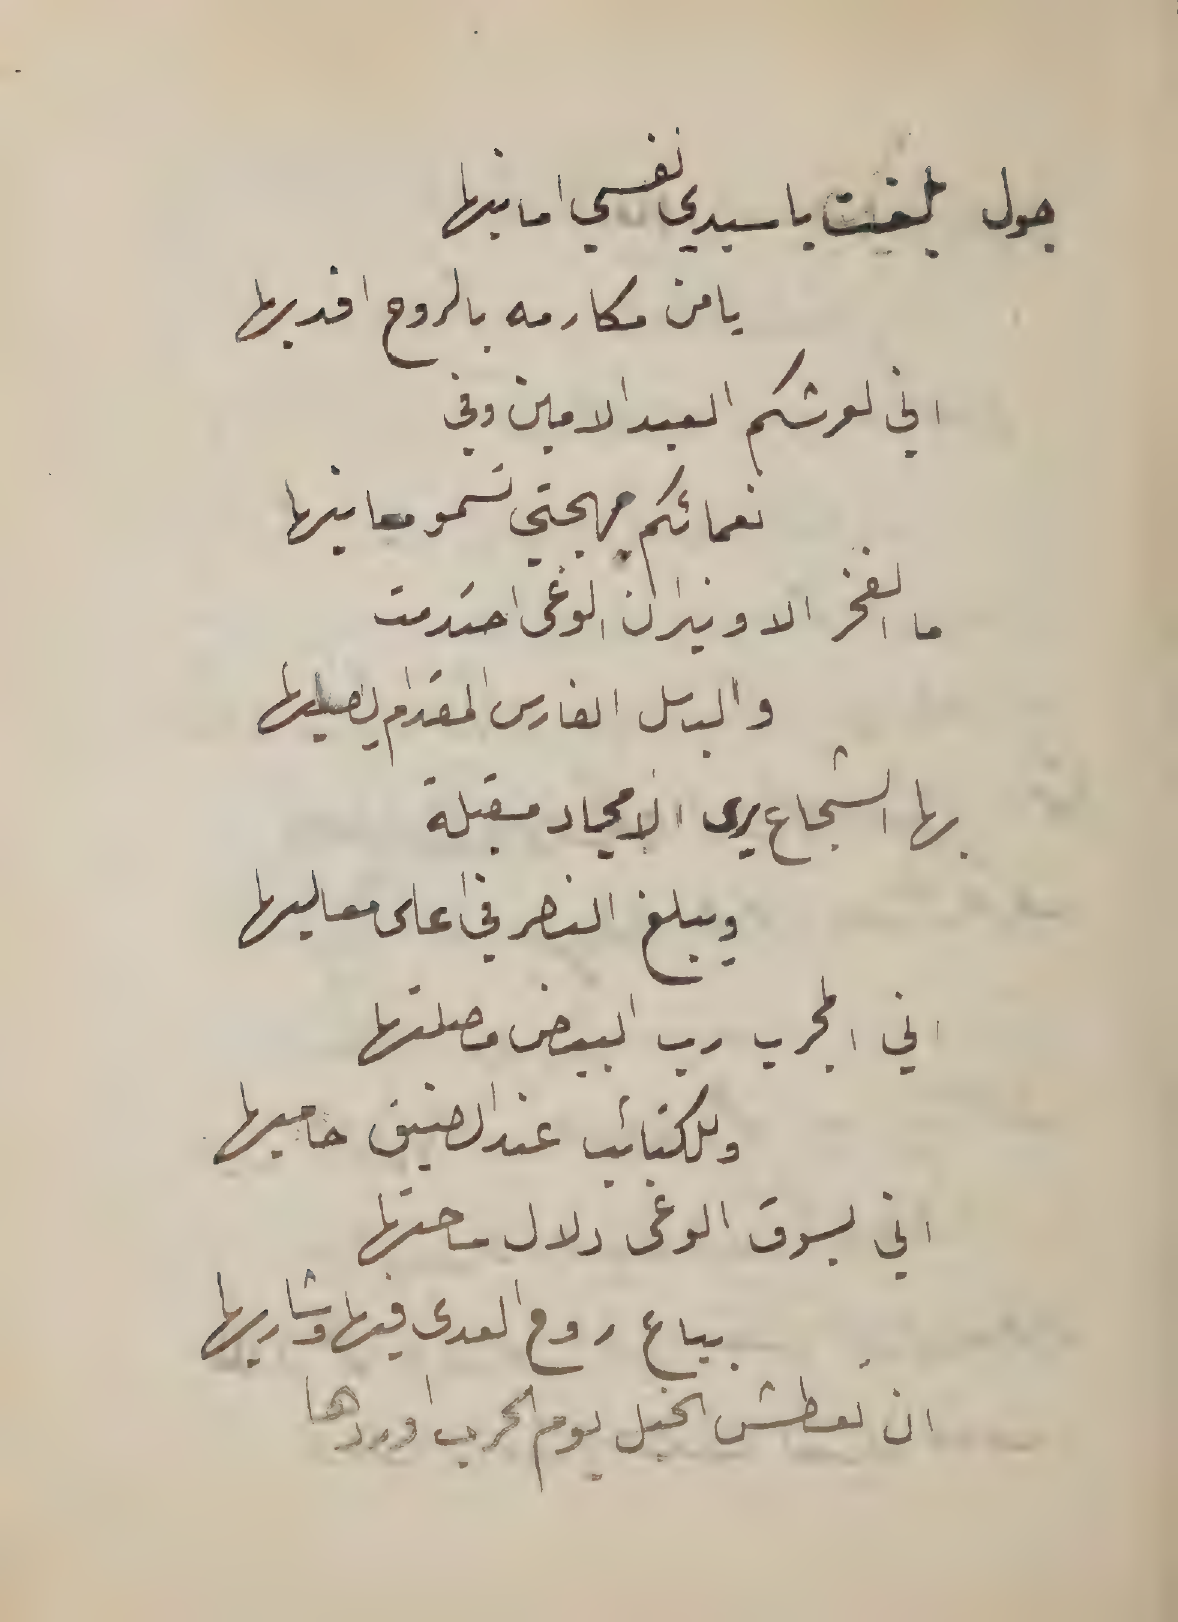 جول بلغت يا سيدي نفسي امانيها
يا من مكارمه بالروح افديها
اني لعرشكم العبد الامين وفي
نعمائكم مهجتي تسمو معانيها
ما الفخر الا و نيران الوغى احتدمت
والباسل الفارس المقدام يصليها
بها الشجاع يرى الامجاد مقبلة
ويبلغ النصر في اعلى معاليها
اني المجرب رب البيض مصلتها
وللكتائب عند الضيق حاميها
اني بسوق الوغى دلال ساحتها
بياع روح العدى فيها وشاريها
ان تعطش الخيل يوم الحرب اوردها